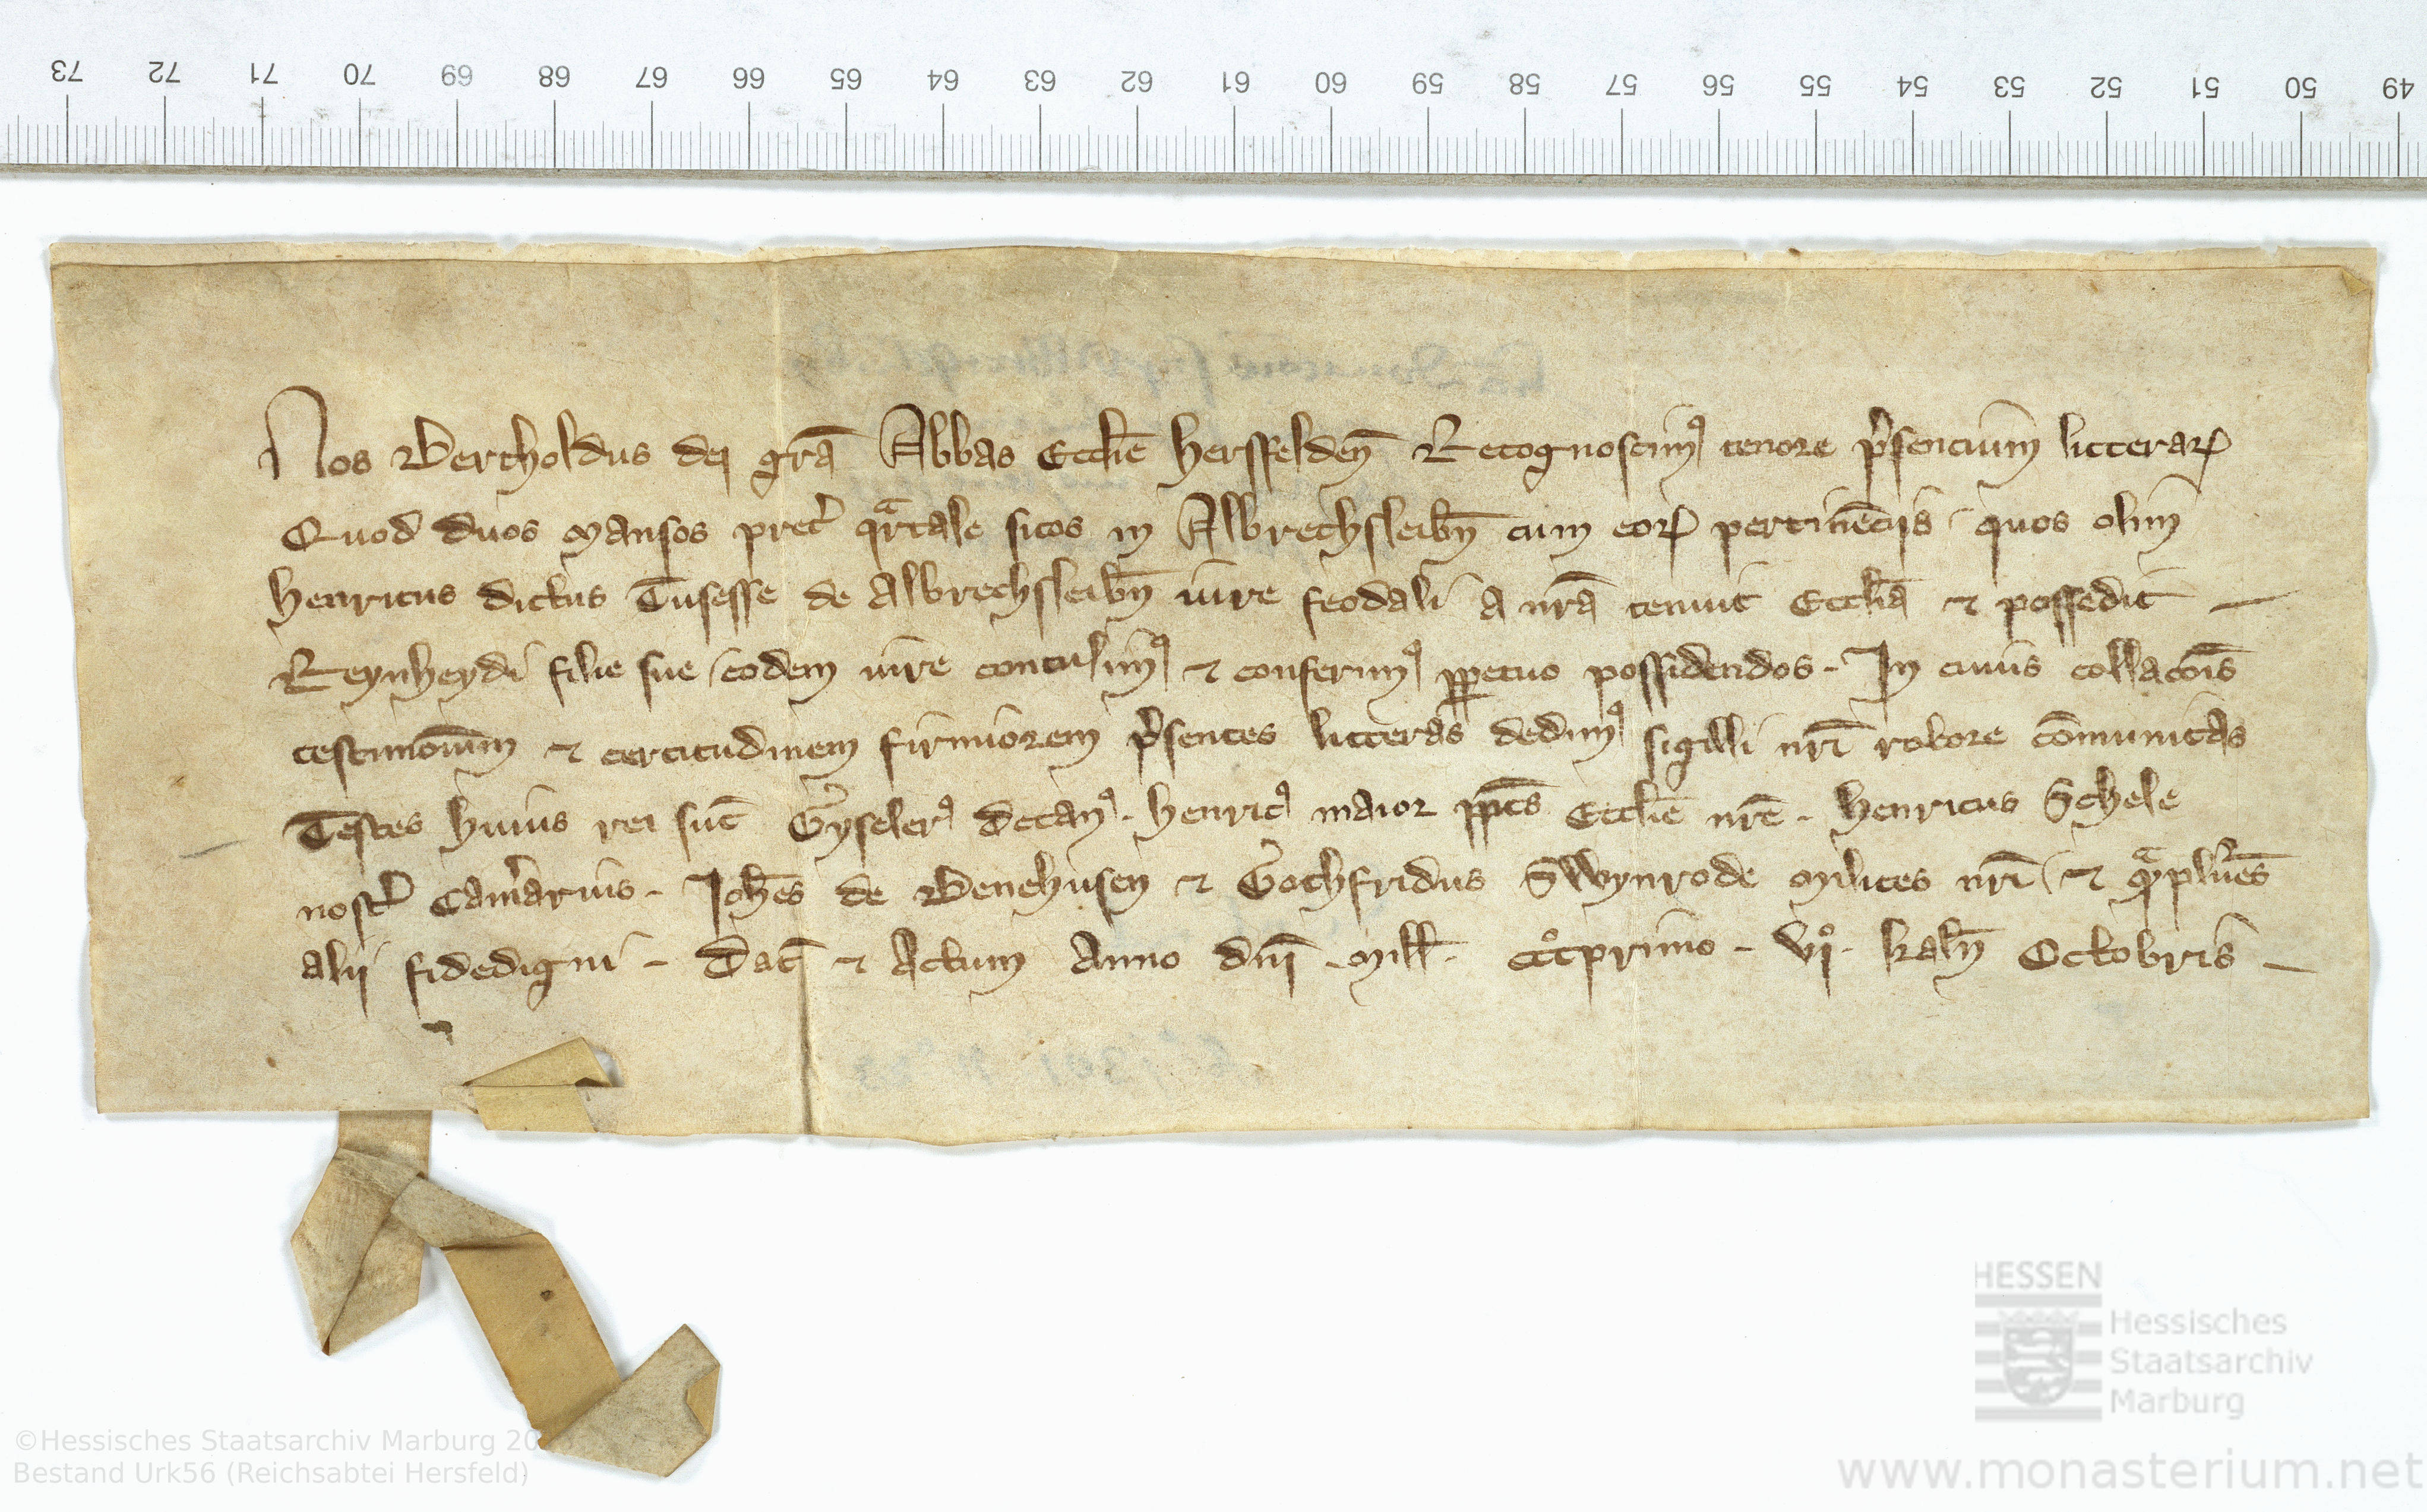 73 72 71 70 69 68 67 66 65 64 63 62 61 60 59 58 57 56 55 54 53 52 51 50 49
Nos Bertholdus dei gr̄a Abbas Eccl̄ie Hersfelden̄ Recognoscimꝰ tenore p̄sencium litterarꝝ
Quod duos mansos pret͛ qᵃrtale sitos in Albrechsleibn̄ cum eorꝝ pertinēcijs quos olim
Henricus dictus Tusesse de Albrechsleibn̄ iure feodali a nr̄a tenuit Eccl̄ia ⁊ possedit
Reynheydi filie sue eodem iure contulimꝰ ⁊ conferimꝰ ꝑpetuo possidendos - In cuius collac̄ois
testimonium ⁊ certitudinem firmiorem p̄sentes litteras dedimꝰ sigilli nr̄i robore cōmunitas
Testes huius rei sūt Gyselerꝰ decanꝰ - Henricꝰ maior pp̄ts Eccl̄ie nr̄e - Henricus Schele
nost͛ Cam̄arius - Joh̄es de Benehusen ⁊ Gothfridus Swynrode milites nr̄i ⁊ qᵃmplur̄es
alij fidedigni - Dat̄ ⁊ Actum Anno dn̄i - Mill̄ - ccc̊primo - vi̊ - kaln̄ Octobris -
HESSEN
Hessisches
Staatsarchiv
Marburg
©Hessisches Staatsarchiv Marburg 20
Bestand Urk56 (Reichsabtei Hersfeld)
www.monasterium.net